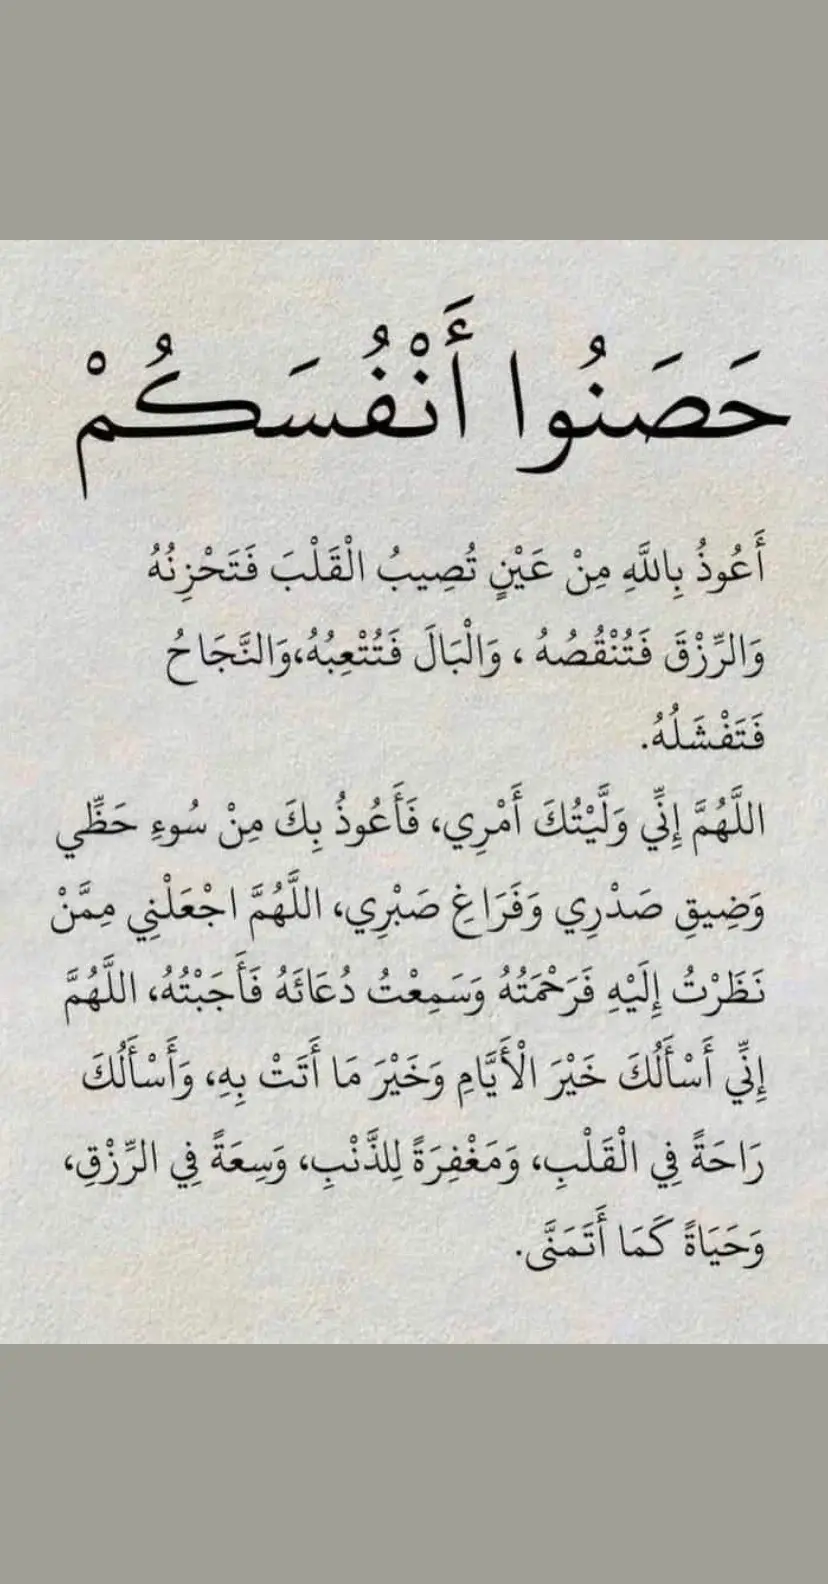 حَصَنُوا أَنْفُسَكُمْ
أَعُوذُ بِاللَّهِ مِنْ عَيْنٍ تُصِيبُ الْقَلْبَ فَتَحْزِنُهُ
وَالرِّزْقَ فَتُنْقُصُهُ ، وَالْبَالَ فَتُتْعِبُهُ،وَالنَّجَاحُ
فَتَفْشَلُهُ.
اللَّهُمَّ إِنِّي وَلَّيْتُكَ أَمْرِي، فَأَعُوذُ بِكَ مِنْ سُوءِ حَظِّي
وَضِيقِ صَدْرِي وَفَرَاغِ صَبْرِي، اللَّهُمَّ اجْعَلْنِي مِمَّنْ
نَظَرْتُ إِلَيْهِ فَرَحْمَتُهُ وَسَمِعْتُ دُعَائَهُ فَأَجَبْتُهُ، اللَّهُمَّ
إِنِّي أَسْأَلُكَ خَيْرَ الْأَيَّامِ وَخَيْرَ مَا أَتَتْ بِهِ، وَأَسْأَلُكَ
رَاحَةً فِي الْقَلْبِ، وَمَغْفِرَةً لِلذَّنْبِ، وَسِعَةً فِي الرِّزْقِ،
وَحَيَاةً كَمَا أَتَمَنَّى.